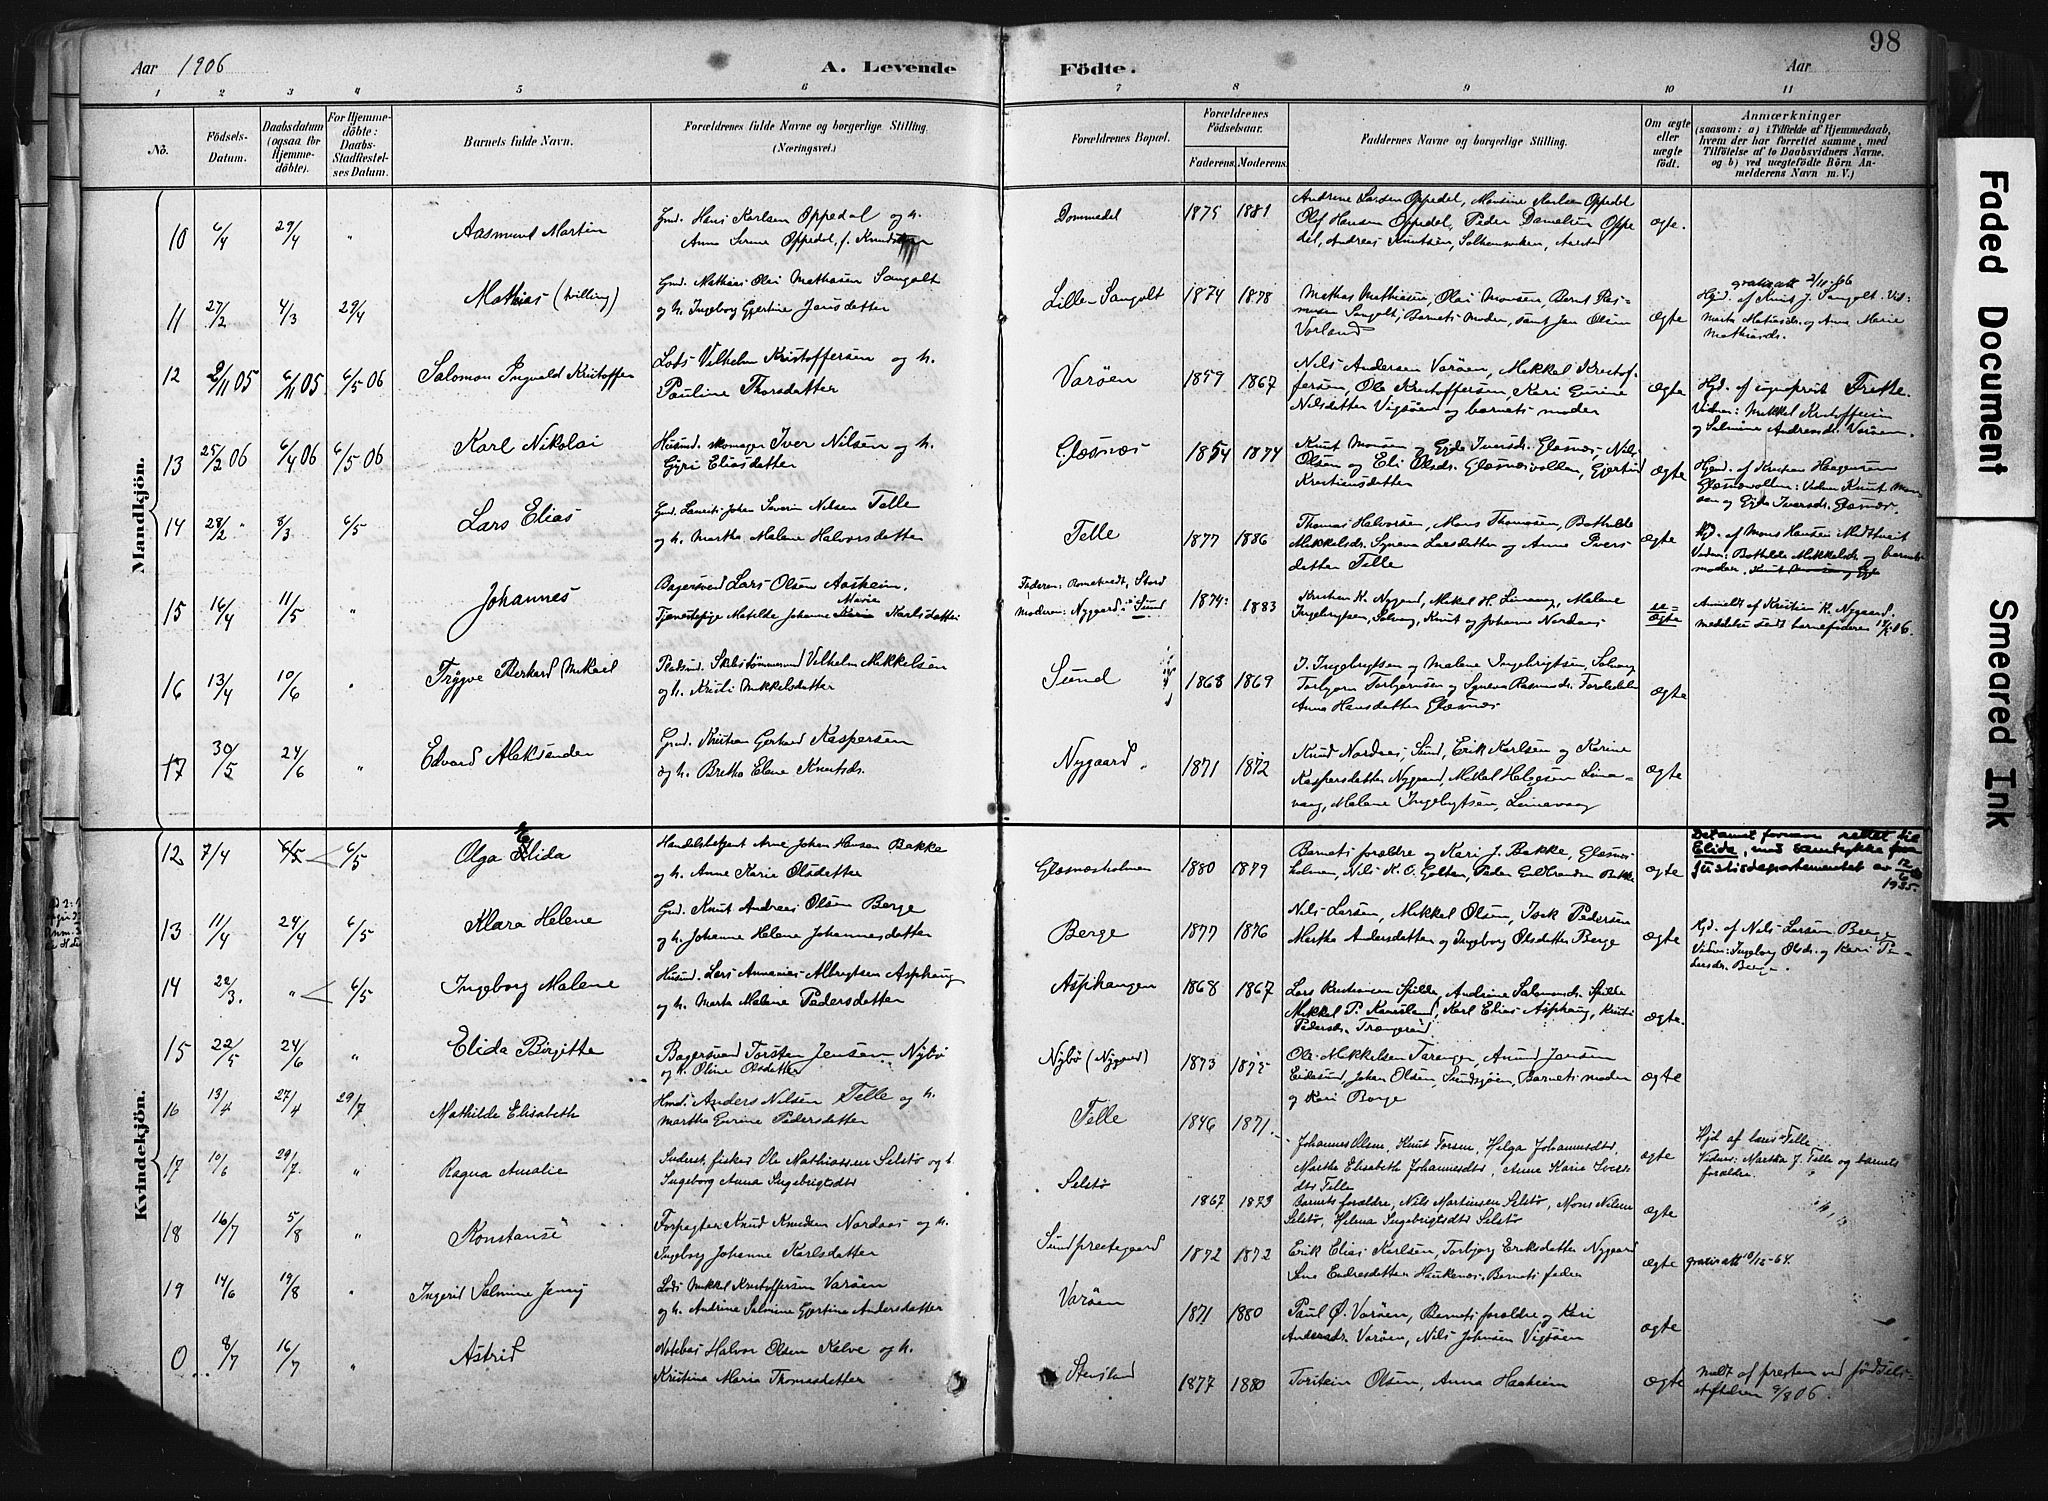 98
Aar 1906
A. Levende
Födte.
Aar
1 2 3 4 5 6 7 8 9 10 11
No.
Födsels-
Datum.
Daabsdatum
(ogsaa for
Hjemme-
döbte).
For Hjemme-
döbte:
Daabs-
Stadfæstel-
ses Datum.
Barnets fulde Navn.
Forældrenes fulde Navne og borgerlige Stilling.
(Næringsvei.)
Forældrenes Bopæl.
Forældrenes
Födselsaar.
Faderens. Moderens.
Faddernes Navne og borgerlige Stilling.
Om ægte
eller
uægte
født.
Anmærkninger
(saasom: a) i Tilfælde af Hjemmedaab,
hvem der har forrettet samme, med
Tilföielse af to Daabsvidners Navne.
og b) ved uægtefödte Börn An-
melderens Navn m. V.)
Mandkjön.
10 6/4 29/4 " Aasmund Martin
Gmd. Hans Karlsen Oppedal og h.
Anna Serine Oppedal, f. Knudsen
Dommedal 1875 1881
Andrine Larsen Oppedal, Mansine Karlsen Oppedal
Olaf Hansen Oppedal, Peder Danielsen Oppe
dal, Andreas Knutsen,
ægte.
11 27/2 4/3 29/4 Mathias (tvilling)
Gmd. Mathias Olai Mathiasen Sangolt
og h. Ingeborg Gjertine Jansdatter
Lille Sangolt 1874 1878
Mathias Mathiasen, Olai Monsen, Bernt Ras-
musen Sangolt, Barnets Moder, samt Jan Olsen
Vorland
ægte
gratisatt 2/11-66
Hjd. af Knut J. Sangolt. Vid:
Marta Matiasdr. og Anna Marie
Mathiasdr.
12 2/11 05 6/11 05 6/5 06 Salomon Ingvald Kristoffer
Lods Vilhelm Kristoffersen og h.
Pauline Thorsdatter
Varøen 1859 1867
Nils Andersen Varøen, Mikkel Kristof-
fersen, Ole Kristoffersen, Kari Gurine
Nilsdatter Vigsøen og barnets moder
ægte
Hjd. af sogneprest Frette.
Vidner: Mikkel Kristoffersen
og Salmine Andreasdr. Varøen.
13 25/2 06 6/4 06 6/5 06 Karl Nikolai
Husmd. skomager Iver Nilsen og h.
Gjyri Eliasdatter
Glæsnæs 1854 1874
Knut Monsen og Eide Iversdr. Glæsnæs, Nils
Olsen og Eli Olsdr. Glæsnæsvollen, Gjertrud
Kristiansdatter
ægte
Hjd. af Kristian Haagensen
Glæsnæsvollen: Vidner Knut Mon-
sen og Eide Iversdr. Glæsnæs.
14 28/2 " 8/3 6/5 Lars Elias
Gmd. Laurits Johan Severin Nilsen Telle
og h. Martha Malene Halvorsdatter
Telle 1877 1886
Thomas Halvorsen, Mons Thomasen, Bothilde
Mikkelsdr. Syneva Larsdatter og Anna Ivers-
datter Telle
ægte
Hjd. af Mons Hansen Midttveit
Vidner: Bothilde Mikkelsdr. og barnets
moder.
15 16/4 11/5 " Johannes
Bagersvend Lars Olsen Aasheim.
Marie
Tjenestepige Matilde Johanne Karlsdatter
Faderen: Rometvedt, Stord
Moderen: Nygaard i Sund
1874: 1883
Kristian K. Nygaard, Mikal H. Limavaag, Malene
Ingebrigtsen, Solvaag, Knut og Johanne Nordaas
uægte
Anmeldt af Kristian K. Nygaard.
16 13/4 10/6 " Trygve Rerhard Mikail
Pladsmd. Skibstømmermd Vilhelm Mikkelsen
og h. Kristi Mikkelsdatter
Sund 1868 1869
J. Ingebrigtsen og Malene Ingebrigtsen, Solvaag
Torbjørn Torbjørnsen og Syneva Rasmusdr.
Anna Hansdatter Glæsnæs
ægte
17 30/5 24/6 " Edvard Aleksander
Gmd. Kristian Gerhard Kaspersen
og h. Britha Elene Knutsdr.
Nygaard. 1871 1872
Knud Nordaas, Sund, Erik Karlsen og Karine
Kaspersdatter Nygaard, Mikal Helgesen Lima-
vaag, Malene Ingebrigtsen, Limavaag
ægte
Kvindekjön.
12 7/4 6/5 6/5 Olga Elida
Handelsbetjent Arne Johan Hansen Bakke
og h. Anne Karie Olsdatter
Glæsnæsholmen 1880 1879
Barnets forældre og Kari J. Bakke, Glæsnæs-
holmen, Nils K. O. Golten, Peder
ægte
Det annet fornavn rettet til
Elida, med samtykke fra
justisdepartementet av 12/6
1935.
13 11/4 24/4 6/5 Klara Helene
Gmd. Knut Andreas Olsen Berge
og h. Johanne Helene Johannesdatter
Berge 1877 1876
Nils Larsen, Mikkel Olsen, Isak Pedersen
Martha Andersdatter og Ingeborg Olsdatter Berge
ægte
Hjd. af Nils Larsen Berge
Vidner: Ingeborg Olsdr. og Kari Pe-
dersdr. Berge.
14 22/3. " 6/5 Ingeborg Malene
Husmd. Lars Annanias Albregtsen Asphaug
og h. Marta Malene Pedersdatter
Asphaugen 1868 1867
Lars Kristiansen Spilde, Andrine Salamonsdr. Spilde
Mikkel P. Kausland, Karl Elias Asphaug, Kristi
Pedersdr. Trængereid
ægte.
15 22/5 24/6 " Elida Birgitte
Bagersvend Torsten Jensen Nybø
og h. Oline Olsdatter
Nybø (Nygaard) 1873 1875
Ole Mikkelsen Taranger, Amund Jensen
Eidesund, Johan Olsen, Sundsøen, Barnets moder
og Kari Borge
ægte
16 13/4 27/4 29/7 Mathilde Elisabeth
Hmd. Anders Nilsen Telle og h.
Martha Gurine Pedersdatter
Telle 1846 1871
Johannes Olsen, Knut Torsen, Helga Johannesdtr
Martha Elisabeth Johannesdtr, Anne Karie Ivers
dtr Telle
ægte
Hjd af Lars Telle
Vidner: Martha J. Telle og barnets
forældre.
17 10/6 29/7 " Ragna Amalie
Inderst. fisker Ole Mathiassen Selstø og h.
Ingeborg Anna Ingebrigtsdtr
Selstø 1867 1873
Barnets forældre, Nils Martinsen Selstø, Mons Nilsen
Selstø, Helena Ingebrigtsdtr Selstø
ægte
18 16/7 5/8 " Konstanse
Forpagter Knud Knudsen Nordaas og h.
Ingeborg Johanne Karlsdatter
Sund prestegaard 1872 1872
Erik Elias Karlsen, Torbjørg Eriksdatter Nygaard
Sina Endresdatter Haukenæs, Barnets fader
ægte gratisatt 10/12-64.
19 14/6 19/8 " Ingerid Salmine Jenny
Lods Mikkel Kristoffersen Varøen
og h. Andrina Salmine Gjertine Andersdatter
Varøen 1871 1880
Paul Ø. Varøen, Barnets forældre og Kari
Andersdr. Varøen, Nils Johnsen Vigsøen
ægte
0 8/7 16/7 " Astrid
Notebas Halvor Olsen Kelve og h.
Kristina Maria Thomasdatter
Stensland 1877 1880
Toristein Olsen, Anna Haaheim
ægte
Meldt af presten ved fødsels-
stiftelsen 9/8 06.
Faded Document
Smeared Ink